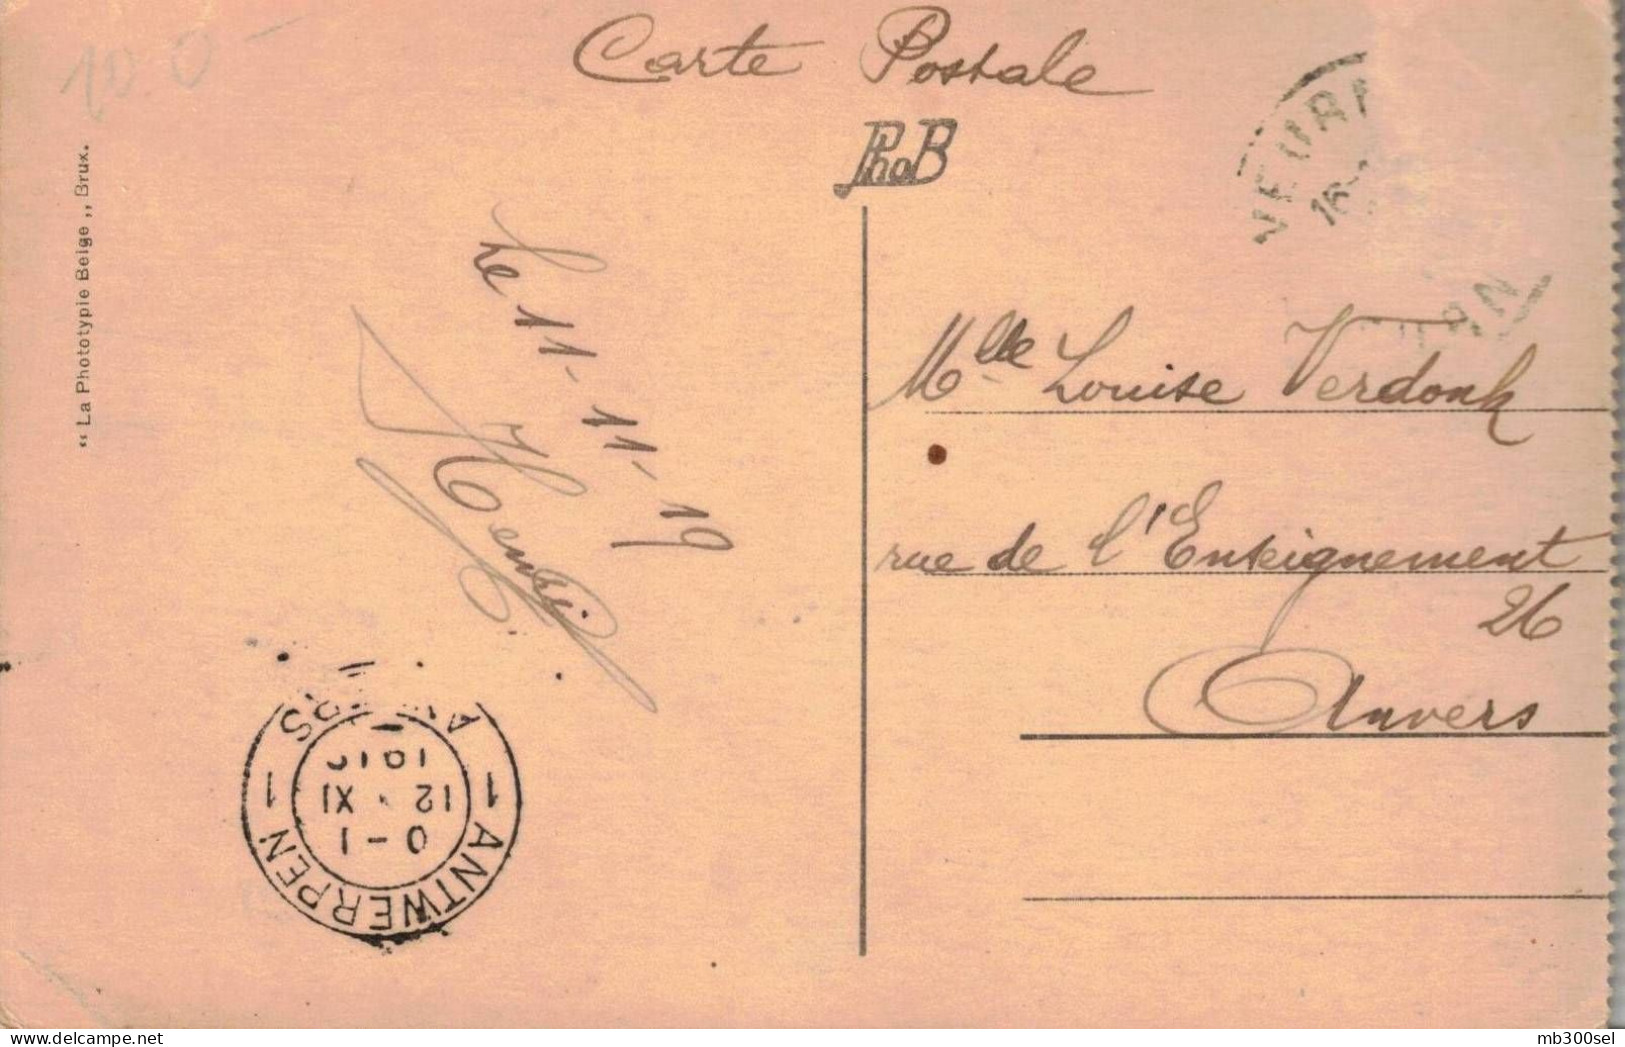 10.0-
Carte Postale
PhoB
VEURN
16
URN
"La Phototypie Belge,, Brux.
Le 11-11-19
Henri
Mlle Louise Verdonk
rue de l'Enseignement
26
Anvers
1 ANTWERPEN 1
0-1
12 XI
191
mb300sel